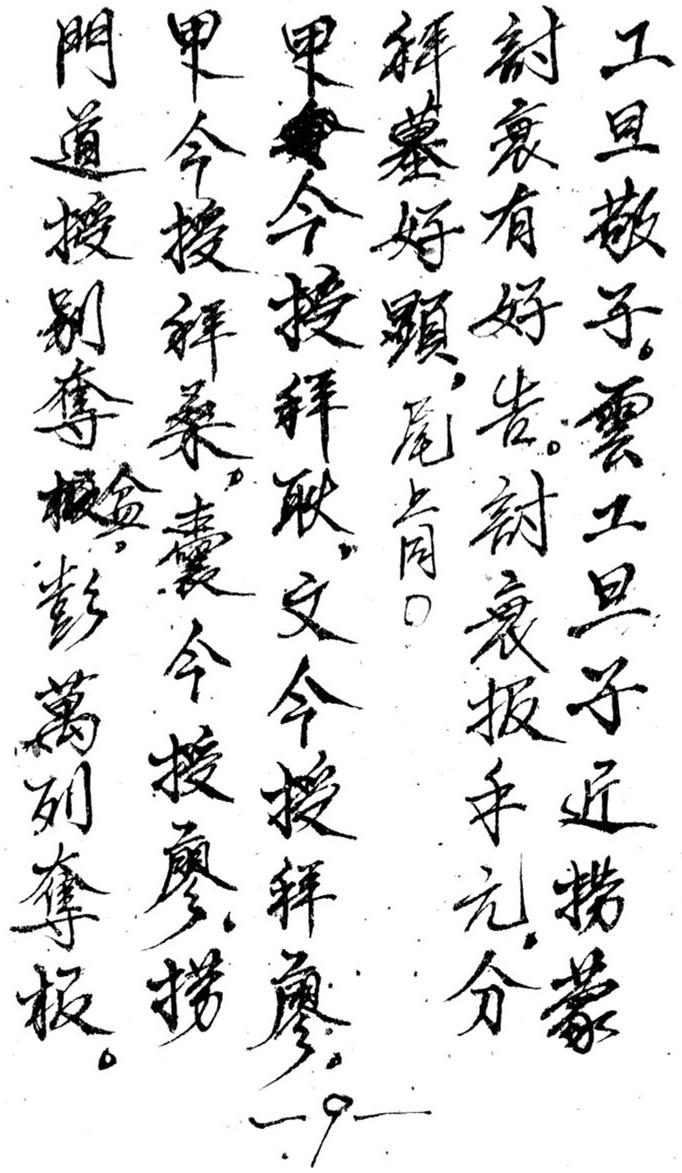 工旦敬子。雲工旦子近撈蒙
討衰有好告。討衰扳手元。分
拜墓好顕。尾上月○
甲今授拜耿。文今授拜廖。
甲今授拜桑。囊今授廖。撈
門道授别奪盆。彭萬列奪板。
—9—